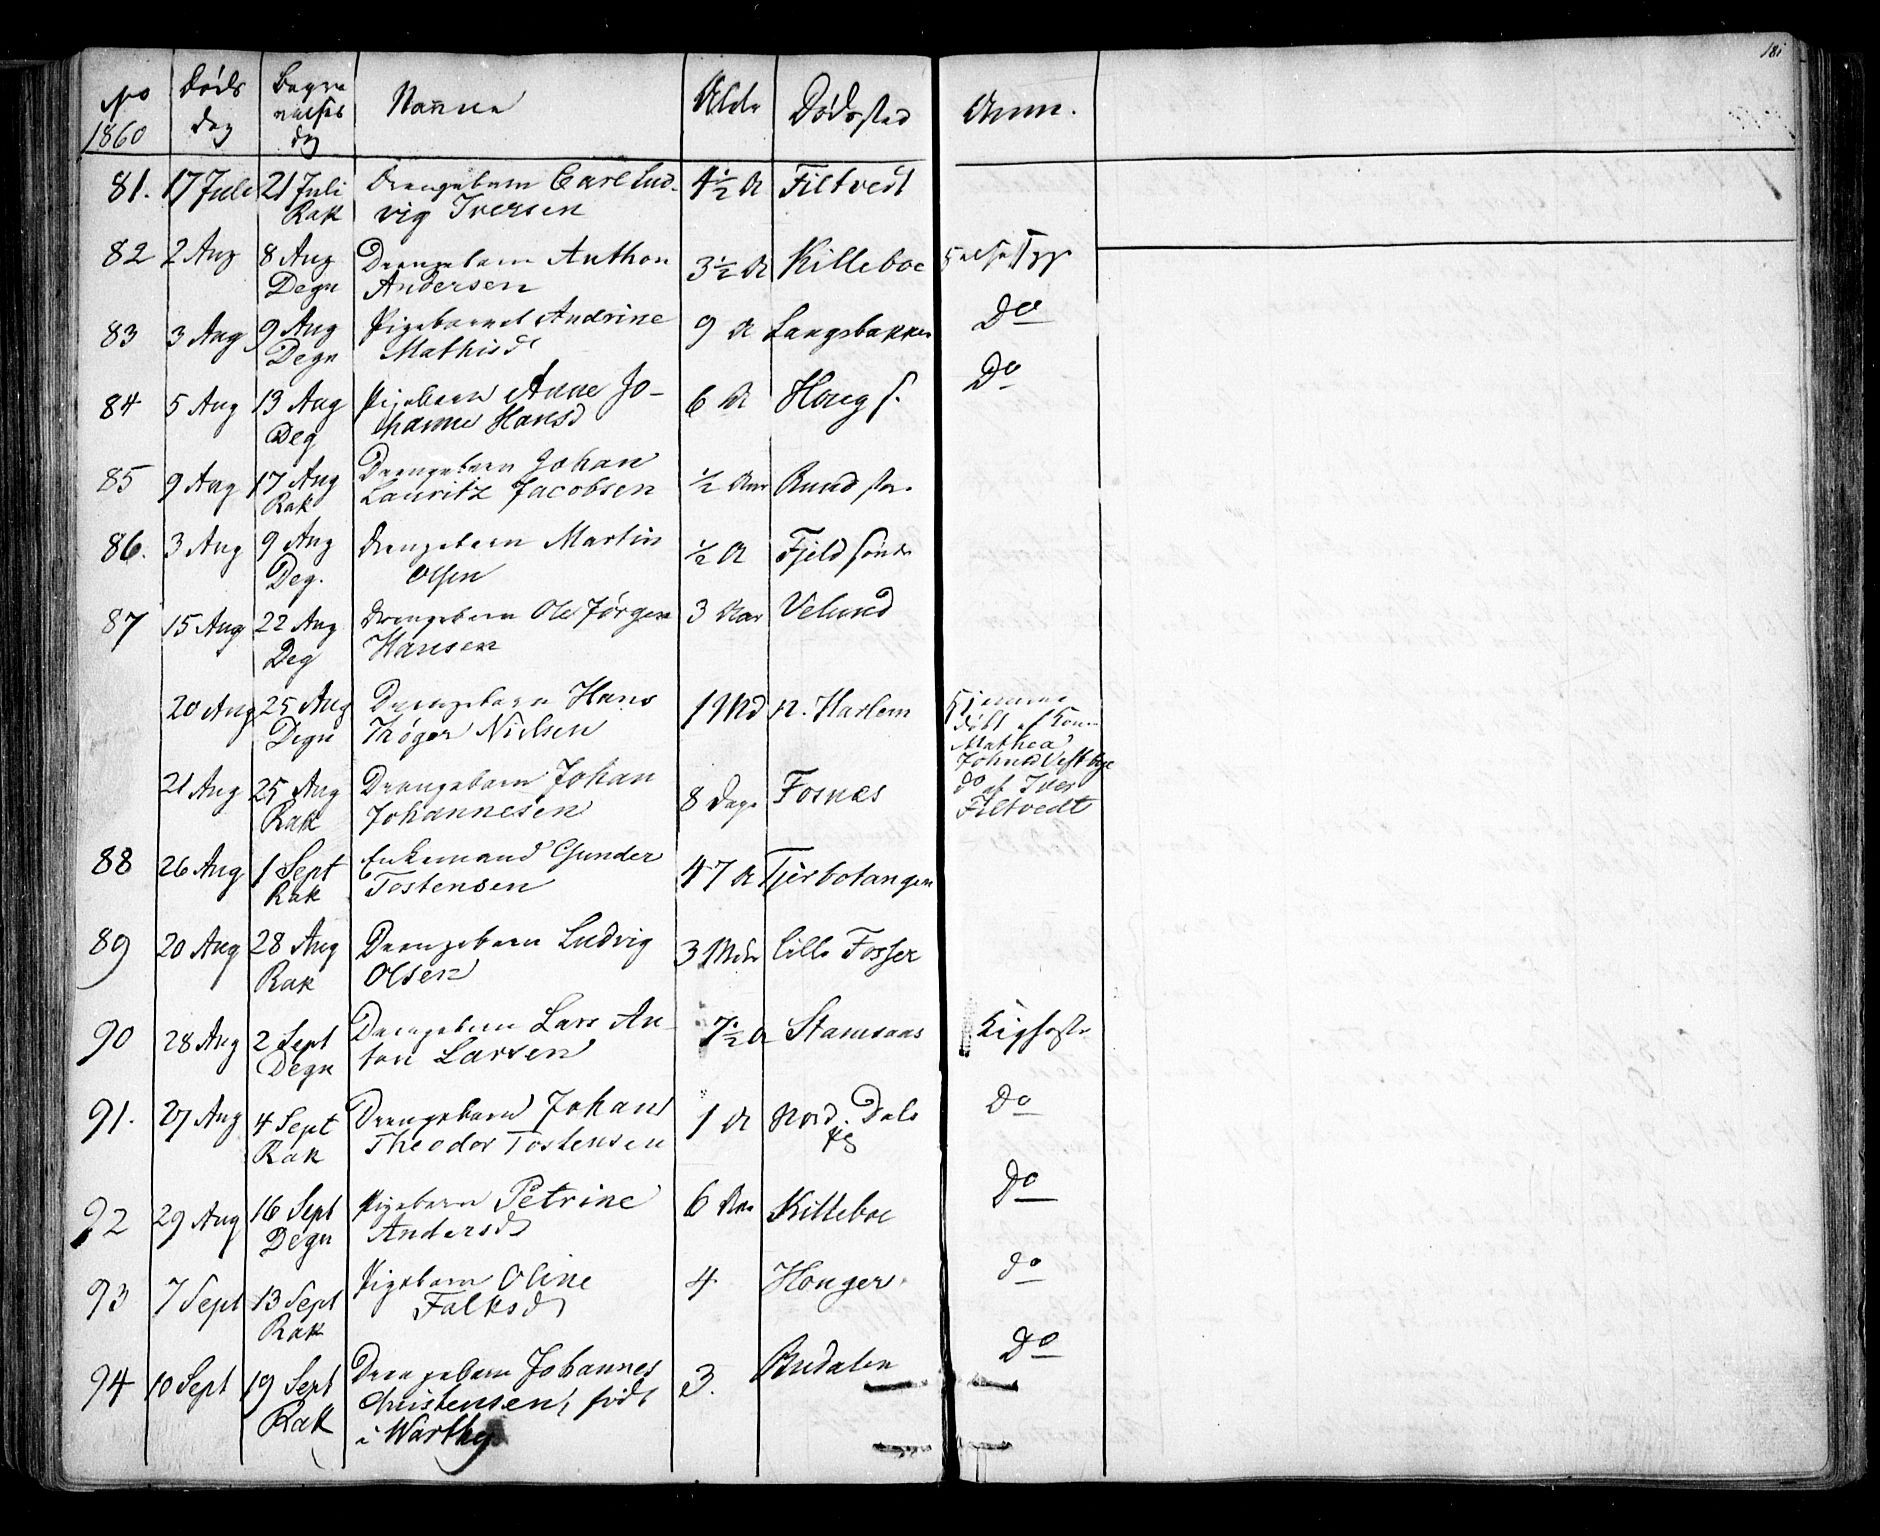 181
No 1860 Døds dag Begravelses dag Navne Alder Dødssted Anm.
81. 17 Juli 21 Juli Drengebarn Carl Lud- 4½ A Filtvedt
Rak vig Iversen
82 2 Aug 8 Aug Drengebarn Anthon 3½ A Killeboe
Degn Andersen
83 3 Aug 9 Aug Pigebarnet Andrine 9 A Langebakken Do
Degn Mathisd
84 5 Aug 13 Aug Pigebarn Anne Jo- 6 A Houg s. Do
Deg hanne Hansd
85 9 Aug 17 Aug Drengebarn Johan ½ Aar
Rak Lauritz Jacobsen
86. 3 Aug 9 Aug Drengebarn Martin ½ A Fjeld søndr
Deg. Olsen
87 15 Aug 22 Aug Drengebarn Ole Jørgen 3 Aar Velund
Deg Hansen
20 Aug 25 Aug Drengebarn Hans 1 Md n. Harlem Hjemme
Degn Thøger Nielsen døbt af Kone
Mathea
Johnsd Vestbye
21 Aug 25 Aug Drengebarn Johan 8 Dage Fosnæs do af Iver
Rak Johannesen Filtvedt
88 26 Aug 1 Sept Enkemand Gunder 47 A Tjerbotangen
Rak Tostensen
89 20 Aug 28 Aug Drengebarn Ludvig 3 Mdr lille Fosser
Rak Olsen
90 28 Aug 2 Sept Drengebarn Lars An- 7½ A Stamsaas Kighoste
Degn ton Larsen
91. 27 Aug 4 Sept Drengebarn Johan 1 A Nord. Dals Do
Rak Theodor Tostensen
92 29 Aug 16 Sept Pigebarn Petrine 6 Aar Killeboe Do
Degn Andersd
93 7 Sept 13 Sept Pigebarn Oline 4 Houger do
Rak Falksd
94 10 Sept 19 Sept Drengebarn Johannes 3. Do
Rak Christensen, født
i Warthy